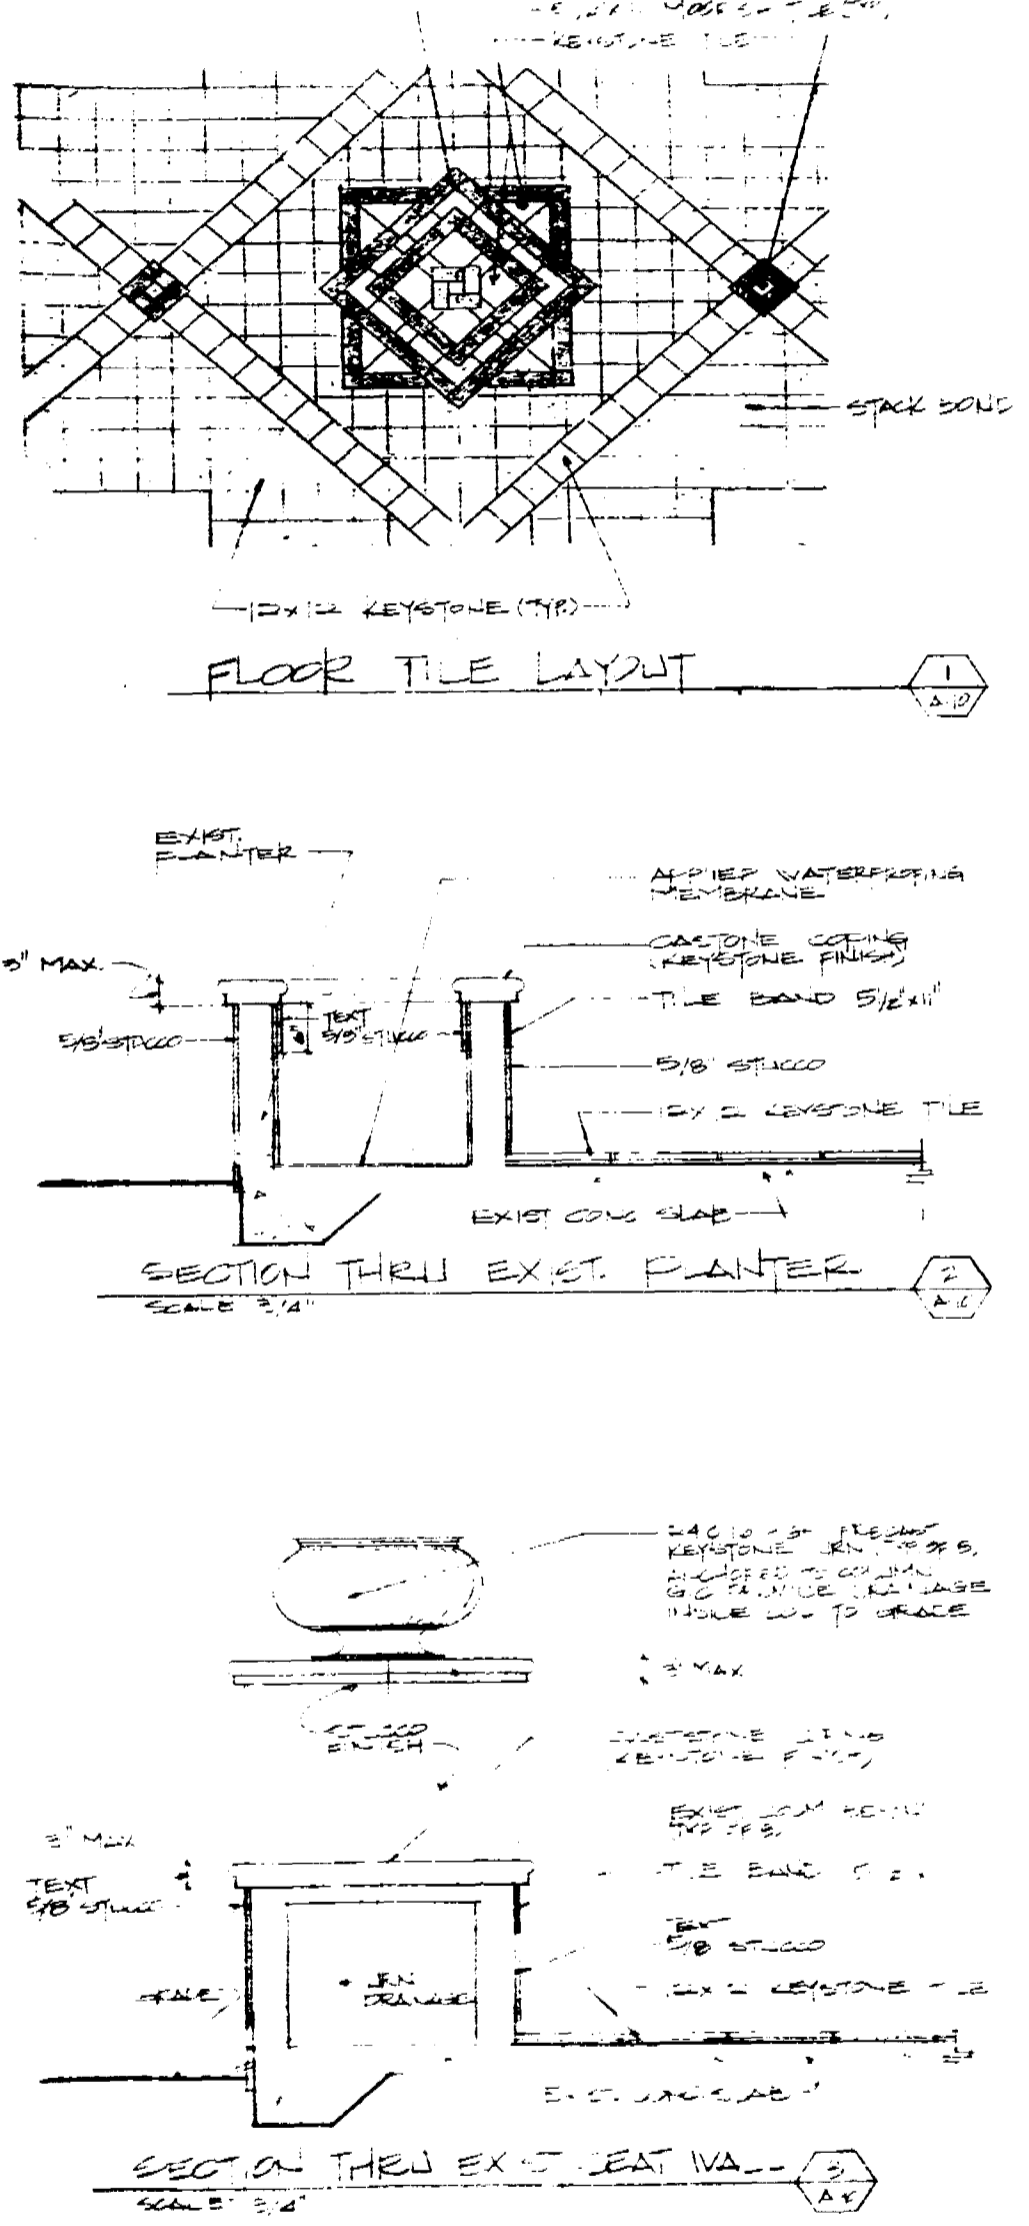 KEYSTONE TILE
STACK BOND
12x12 KEYSTONE (TYP.)
FLOOR TILE LAYOUT
1
A-10
EXIST.
PLANTER
APPLIED WATERPROOFING
MEMBRANE
CASTONE COPING
(KEYSTONE FINISH)
3" MAX.
TILE BAND 5 1/2"x11"
TEXT
5/8" STUCCO
5/8" STUCCO
5/8" STUCCO
12x12 KEYSTONE TILE
EXIST CONC SLAB
SECTION THRU EXIST. PLANTER
2
A-6
SCALE 3/4"
PRECAST
KEYSTONE URN, TYP OF 5,
ANCHORED TO COLUMN
DRAINAGE
TO GRADE
3" MAX
STUCCO
FINISH
KEYSTONE FINISH)
EXIST
TYP OF 3.
3" MAX
TILE BAND
TEXT
5/8 STUCCO
TEXT
5/8 STUCCO
URN
DRAINAGE
GRADE
12x12 KEYSTONE
EXIST CONC SLAB
SECTION THRU EXIST SEAT WALL
3
A-6
SCALE 3/4"